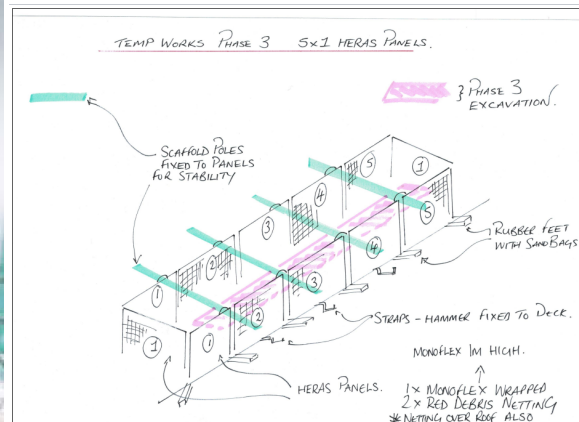 TEMP WORKS PHASE 3 5x1 HERAS PANELS.
} PHASE 3
EXCAVATION.
SCAFFOLD POLES
FIXED TO PANELS
FOR STABILITY
1
5
4
3
2
1
5
4
3
2
1
1
RUBBER FEET
WITH SANDBAGS
STRAPS - HAMMER FIXED TO DECK.
MONOFLEX 1M HIGH.
HERAS PANELS.
1 x MONOFLEX WRAPPED
2 x RED DEBRIS NETTING
* NETTING OVER ROOF ALSO